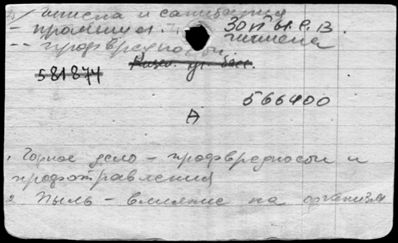 гигиена и санитария
- промышл. гигиена
-- профвредности
581877
566400
А
1. Горное дело - профвредности и
профотравления
2. Пыль - влияние на организм